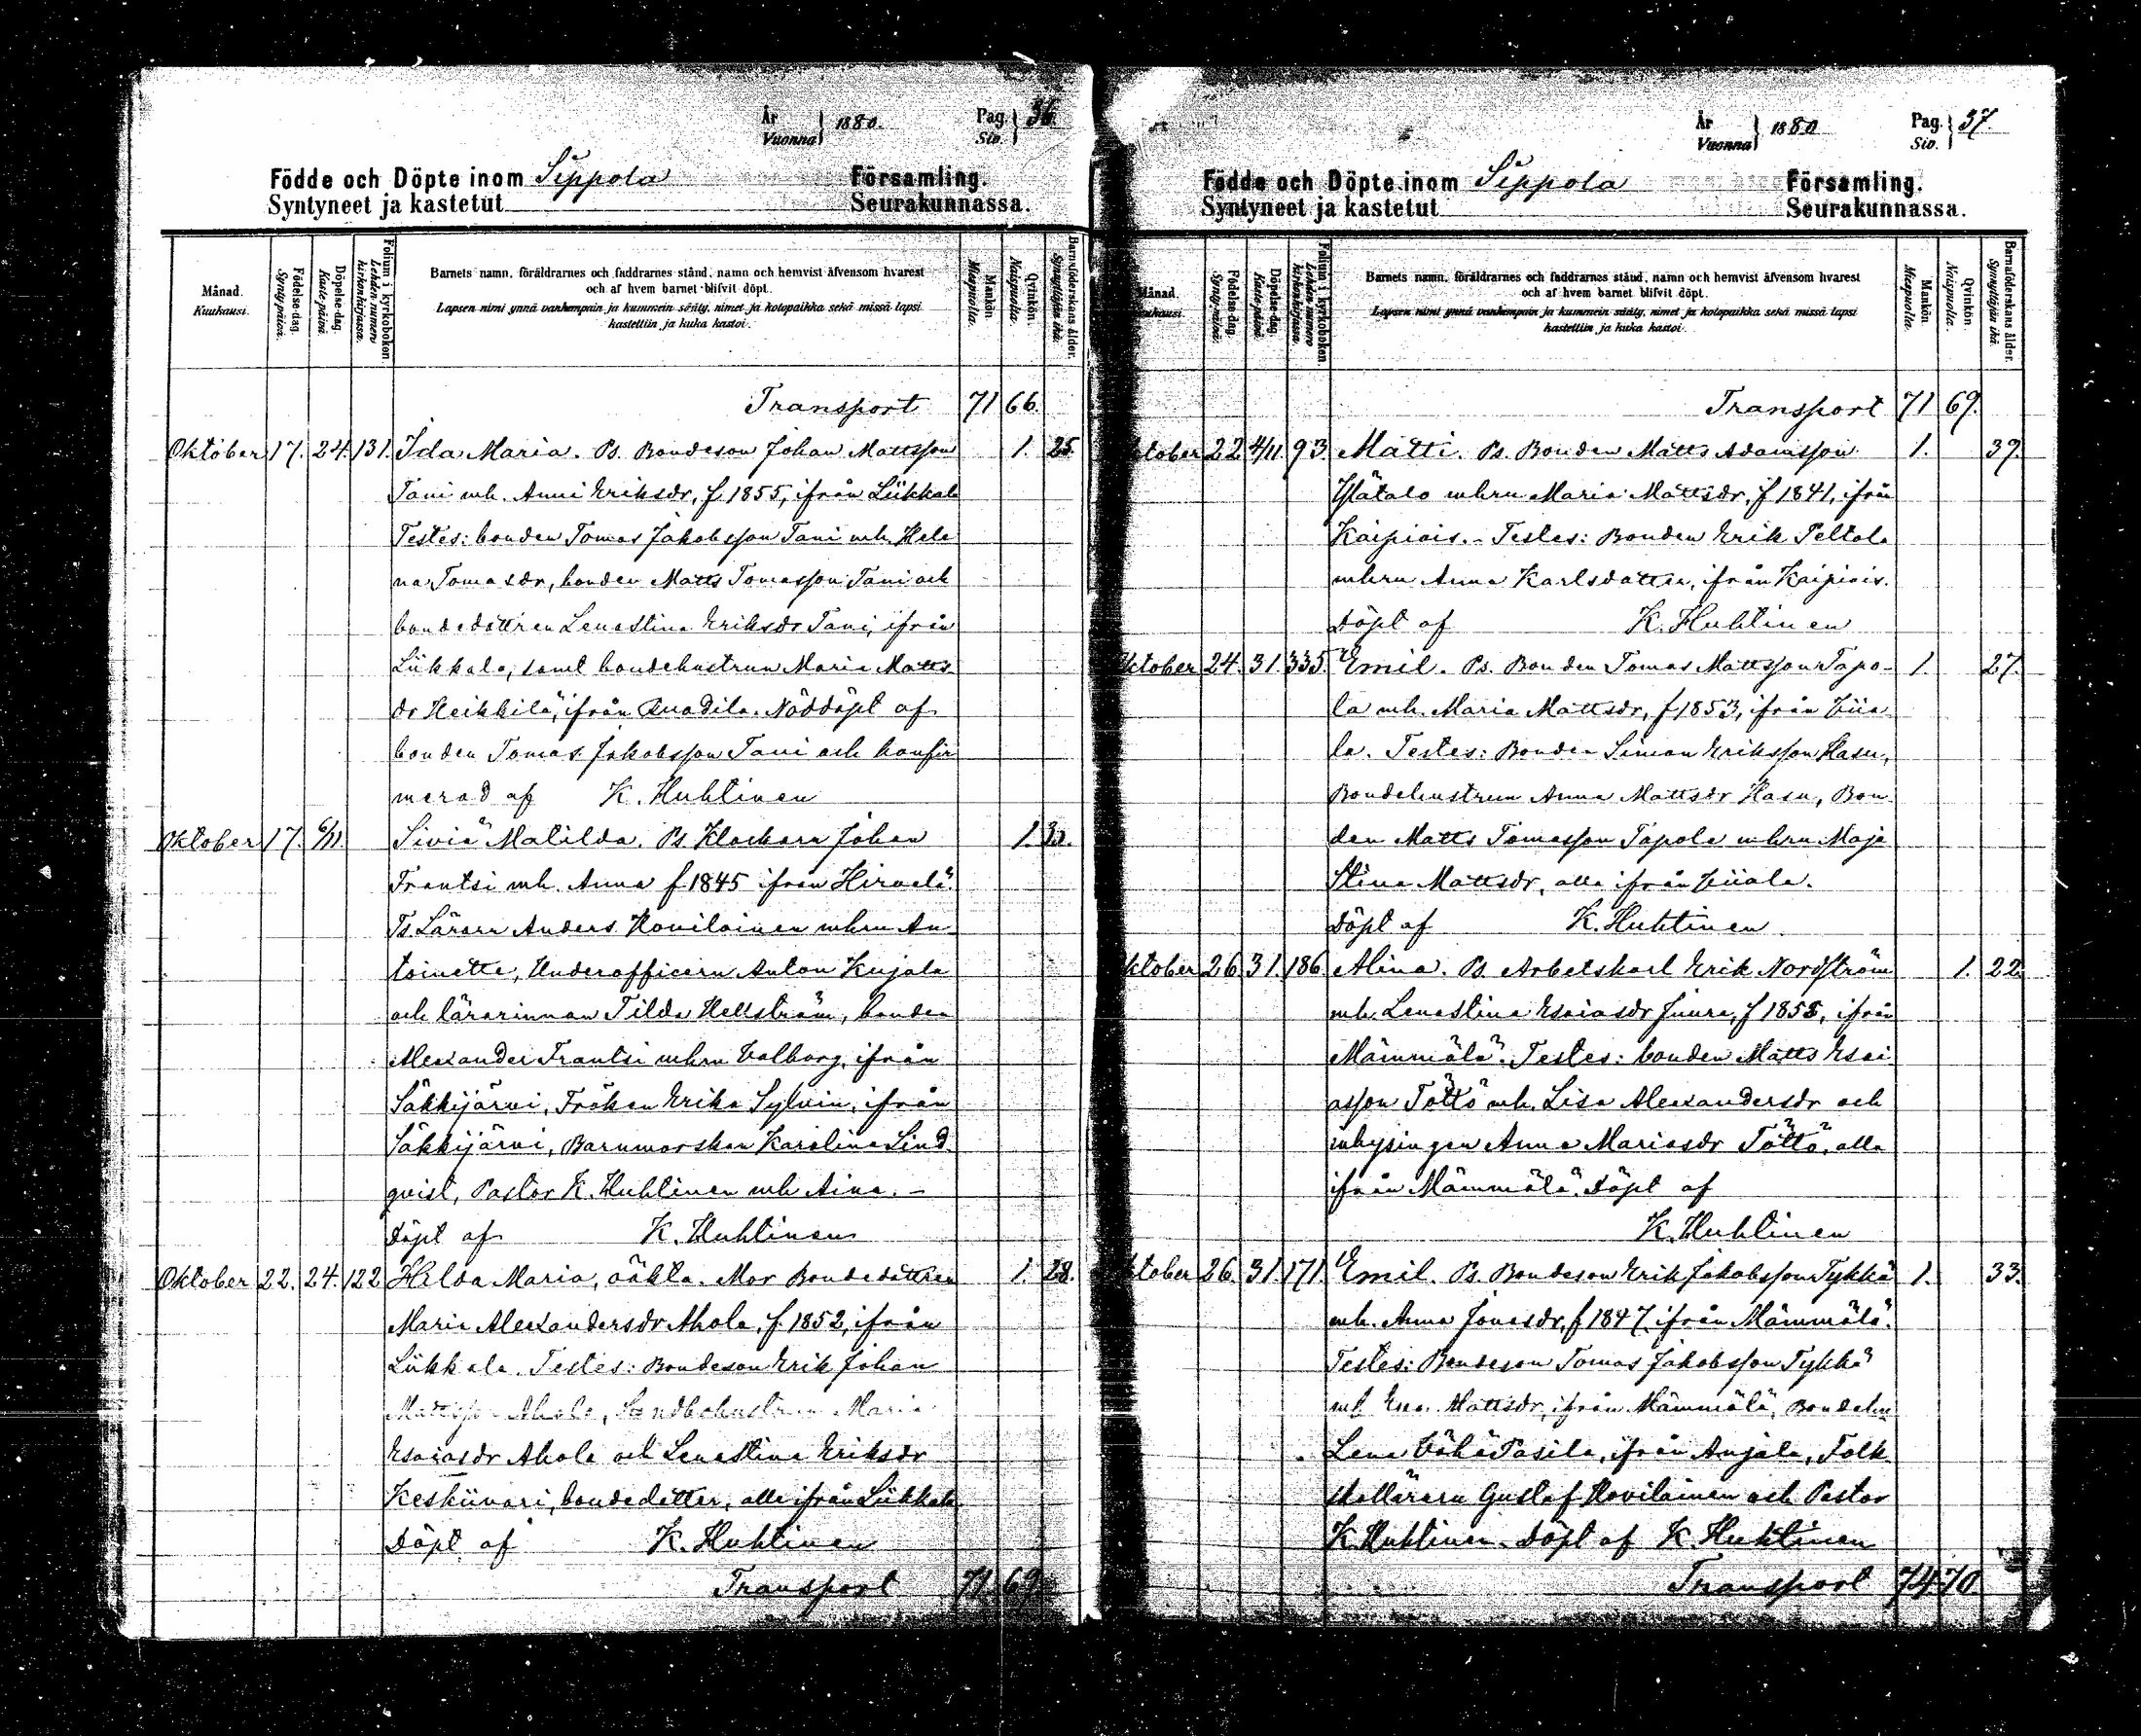 År
Vuonna } 1880. Pag.
Siv. } 36.
Födde och Döpte inom Sippola Församling.
Syntyneet ja kastetut Seurakunnassa.
Månad.
Kuukausi.
Födelse-dag.
Syntypäivä.
Döpelse-dag.
Kaste-päivä.
Folium i kyrkoboken.
Lehden numero kirkonkirjassa.
Barnets namn, föräldrarnes och faddrarnes stånd, namn och hemvist äfvensom hvarest
och af hvem barnet blifvit döpt.
Lapsen nimi ynnä vanhempain ja kummein sääty, nimet ja kotopaikka sekä missä lapsi
kastettiin ja kuka kastoi.
Mankön.
Miespuolta.
Qvinkön.
Naispuolta.
Barnaföderskans ålder.
Synnyttäjän ikä.
Transport 71 66.
Oktober 17. 24. 131. Ida Maria. Ps. Bondeson Johan Mattsson 1. 25.
Tani mh. Anni Eriksdr, f 1855, ifrån Liikkala
Testes: bonden Tomas Jakobsson Tani mh. Hele
na Tomasdr, bonden Matts Tomasson Tani och
bondedottren Lenastina Eriksdr Tani, ifrån
Liikkala, samt bondehustrun Maria Matts-
dr Heikkilä, ifrån Ruadila. Nöddöpt af
bonden Tomas Jakobsson Tani och konfir
merad af K. Huhtinen
Oktober 17. 6/11. Siviä Matilda. Ps. Klockarn Johan 1. 35.
Frantsi mh. Anna f 1845 ifrån Hirvelä.
Ts. Lärarn Anders Hovilainen mhru An
toinette, Underofficern Anton Kujala
och lärarinnan Tilda Hellström, bonden
Alexander Frantsi mhru Valborg, ifrån
Säkkijärvi, Fröken Erika Sylvin, ifrån
Säkkijärvi, Barnmorskan Karolina Lind
qvist, Pastor K. Huhtinen mh Aina. –
Döpt af K. Huhtinen
Oktober 22. 24. 122 Hilda Maria, oäkta. Mor Bondedottren 1. 28.
Maria Alexandersdr Ahola, f 1852, ifrån
Liikkala. Testes: Bondeson Erik Johan
Mattsson Ahola, Maria
Esaiasdr Ahola och Lenastina Eriksdr
Keskiivari, bondedotter, alla ifrån Liikkala
Döpt af K. Huhtinen
Transport 71 69
År
Vuonna } 1880 Pag.
Siv. } 37.
Födde och Döpte inom Sippola Församling.
Syntyneet ja kastetut Seurakunnassa.
Månad.
Kuukausi.
Födelse-dag.
Syntypäivä.
Döpelse-dag.
Kaste-päivä.
Folium i kyrkoboken.
Lehden numero kirkonkirjassa.
Barnets namn, föräldrarnes och faddrarnes stånd, namn och hemvist äfvensom hvarest
och af hvem barnet blifvit döpt.
Lapsen nimi ynnä vanhempain ja kummein sääty, nimet ja kotopaikka sekä missä lapsi
kastettiin ja kuka kastoi.
Mankön
Miespuolta.
Qvinkön.
Naispuolta.
Barnaföderskans ålder.
Synnyttäjän ikä.
Transport 71 69.
Oktober 22 4/11. 93. Matti. Ps. Bonden Matts Adamsson 1. 39.
Ylätalo mhru Maria Mattsdr, f 1841, ifrån
Kaipiais. – Testes: Bonden Erik Peltola
mhru Anna Karlsdotter, ifrån Kaipiais.
Döpt af K. Huhtinen
Oktober 24. 31. 335. Emil. Ps. Bonden Tomas Mattsson Tapo- 1. 27.
la mh. Maria Mattsdr, f 1853, ifrån Viia
la. Testes: Bonden Simon Eriksson Hasu,
Bondehustrun Anna Mattsdr Hasu, Bon
den Matts Tomasson Tapola mhru Maja
Stina Mattsdr, alla ifrån Viiala.
Döpt af K. Huhtinen
Oktober 26 31. 186 Alina. Ps. Arbetskarl Erik Nordström 1. 22.
mh. Lenastina Esaiasdr Juura, f 1858, ifrån
Mämmälä. Testes: bonden Matts Esai
asson Töttö mh. Lisa Alexandersdr och
inhysingen Anna Mariasdr Töttö, alla
ifrån Mämmälä. Döpt af
K. Huhtinen
Oktober 26. 31. 171. Emil. Ps. Bondeson Erik Jakobsson Tykkä 1. 33.
mh. Anna Jonasdr, f 1847, ifrån Mämmälä.
Testes: Bondeson Tomas Jakobsson Tykkä
mh. Eva Mattsdr, ifrån Mämmälä, Bondehu
Lena Vähä Pasila, ifrån Anjala, Folk
skolläraren Gustaf Hovilainen och Pastor
K. Huhtinen. Döpt af K. Huhtinen
Transport 74 70